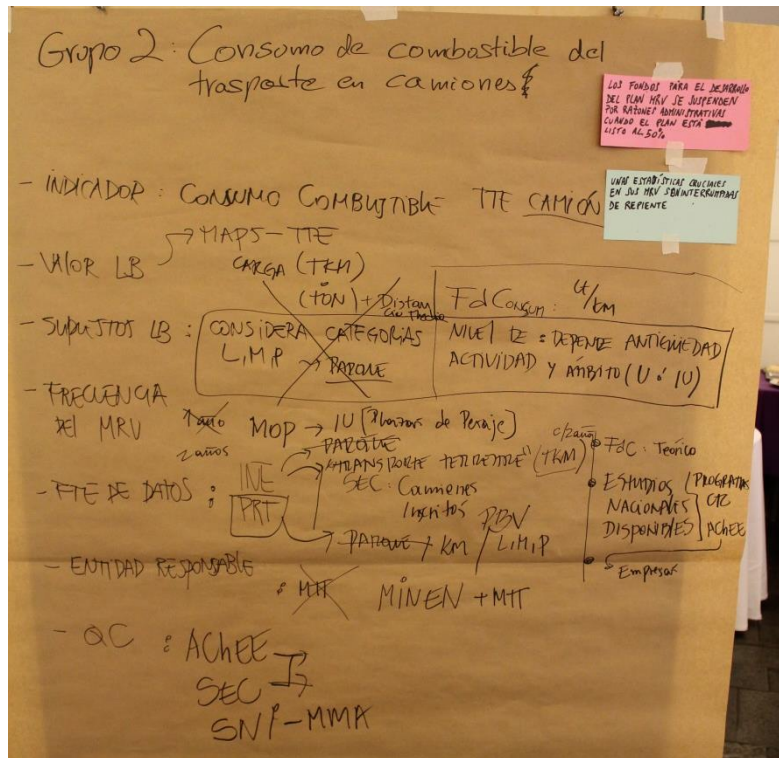 Grupo 2: Consumo de combostible del
trasporte en camiones
LOS FONDOS PARA EL DESARROLLO
DEL PLAN MRV SE SUSPENDEN
POR RAZONES ADMINISTRATIVAS
CUANDO EL PLAN ESTÁ
LISTO AL 50%
UNAS ESTADÍSTICAS CRUCIALES
EN SUS MRV SON INTERRUMPIDAS
DE REPENTE
- INDICADOR : CONSUMO COMBUSTIBLE TTE CAMIÓN
- VALOR LB → MAPS-TTE
CARGA (TKM)
(TON) + Distan
- SUPUESTOS LB : CONSIDERA CATEGORÍAS
L,M,P → PARQUE
FdConsum: Lt/km
NIVEL 12 : DEPENDE ANTIGÜEDAD
ACTIVIDAD Y ÁMBITO (U ó IU)
- FRECUENCIA
DEL MRV
1 año
2 años
MOP → IU [Plazas de Peaje]
PARQUE
"TRANSPORTE TERRESTRE" (TKM)
c/2años
- FTE DE DATOS : INE
PRT
SEC: Camiones
Inscritos
→ PARQUE + KM / PBV
L,M,P
FdC: Teórico
ESTUDIOS
NACIONALES
DISPONIBLES
PROGRAMAS
AChEE
Empresas
- ENTIDAD RESPONSABLE
: MTT MINEN + MTT
- QC : AChEE
SEC
SNI-MMA